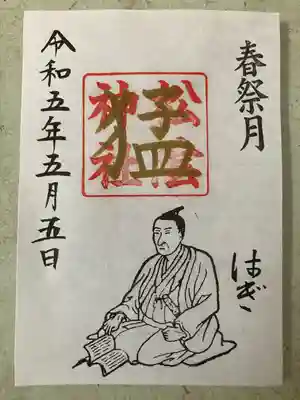 春祭月
はぎ
松陰
神社
猛
令和五年五月五日